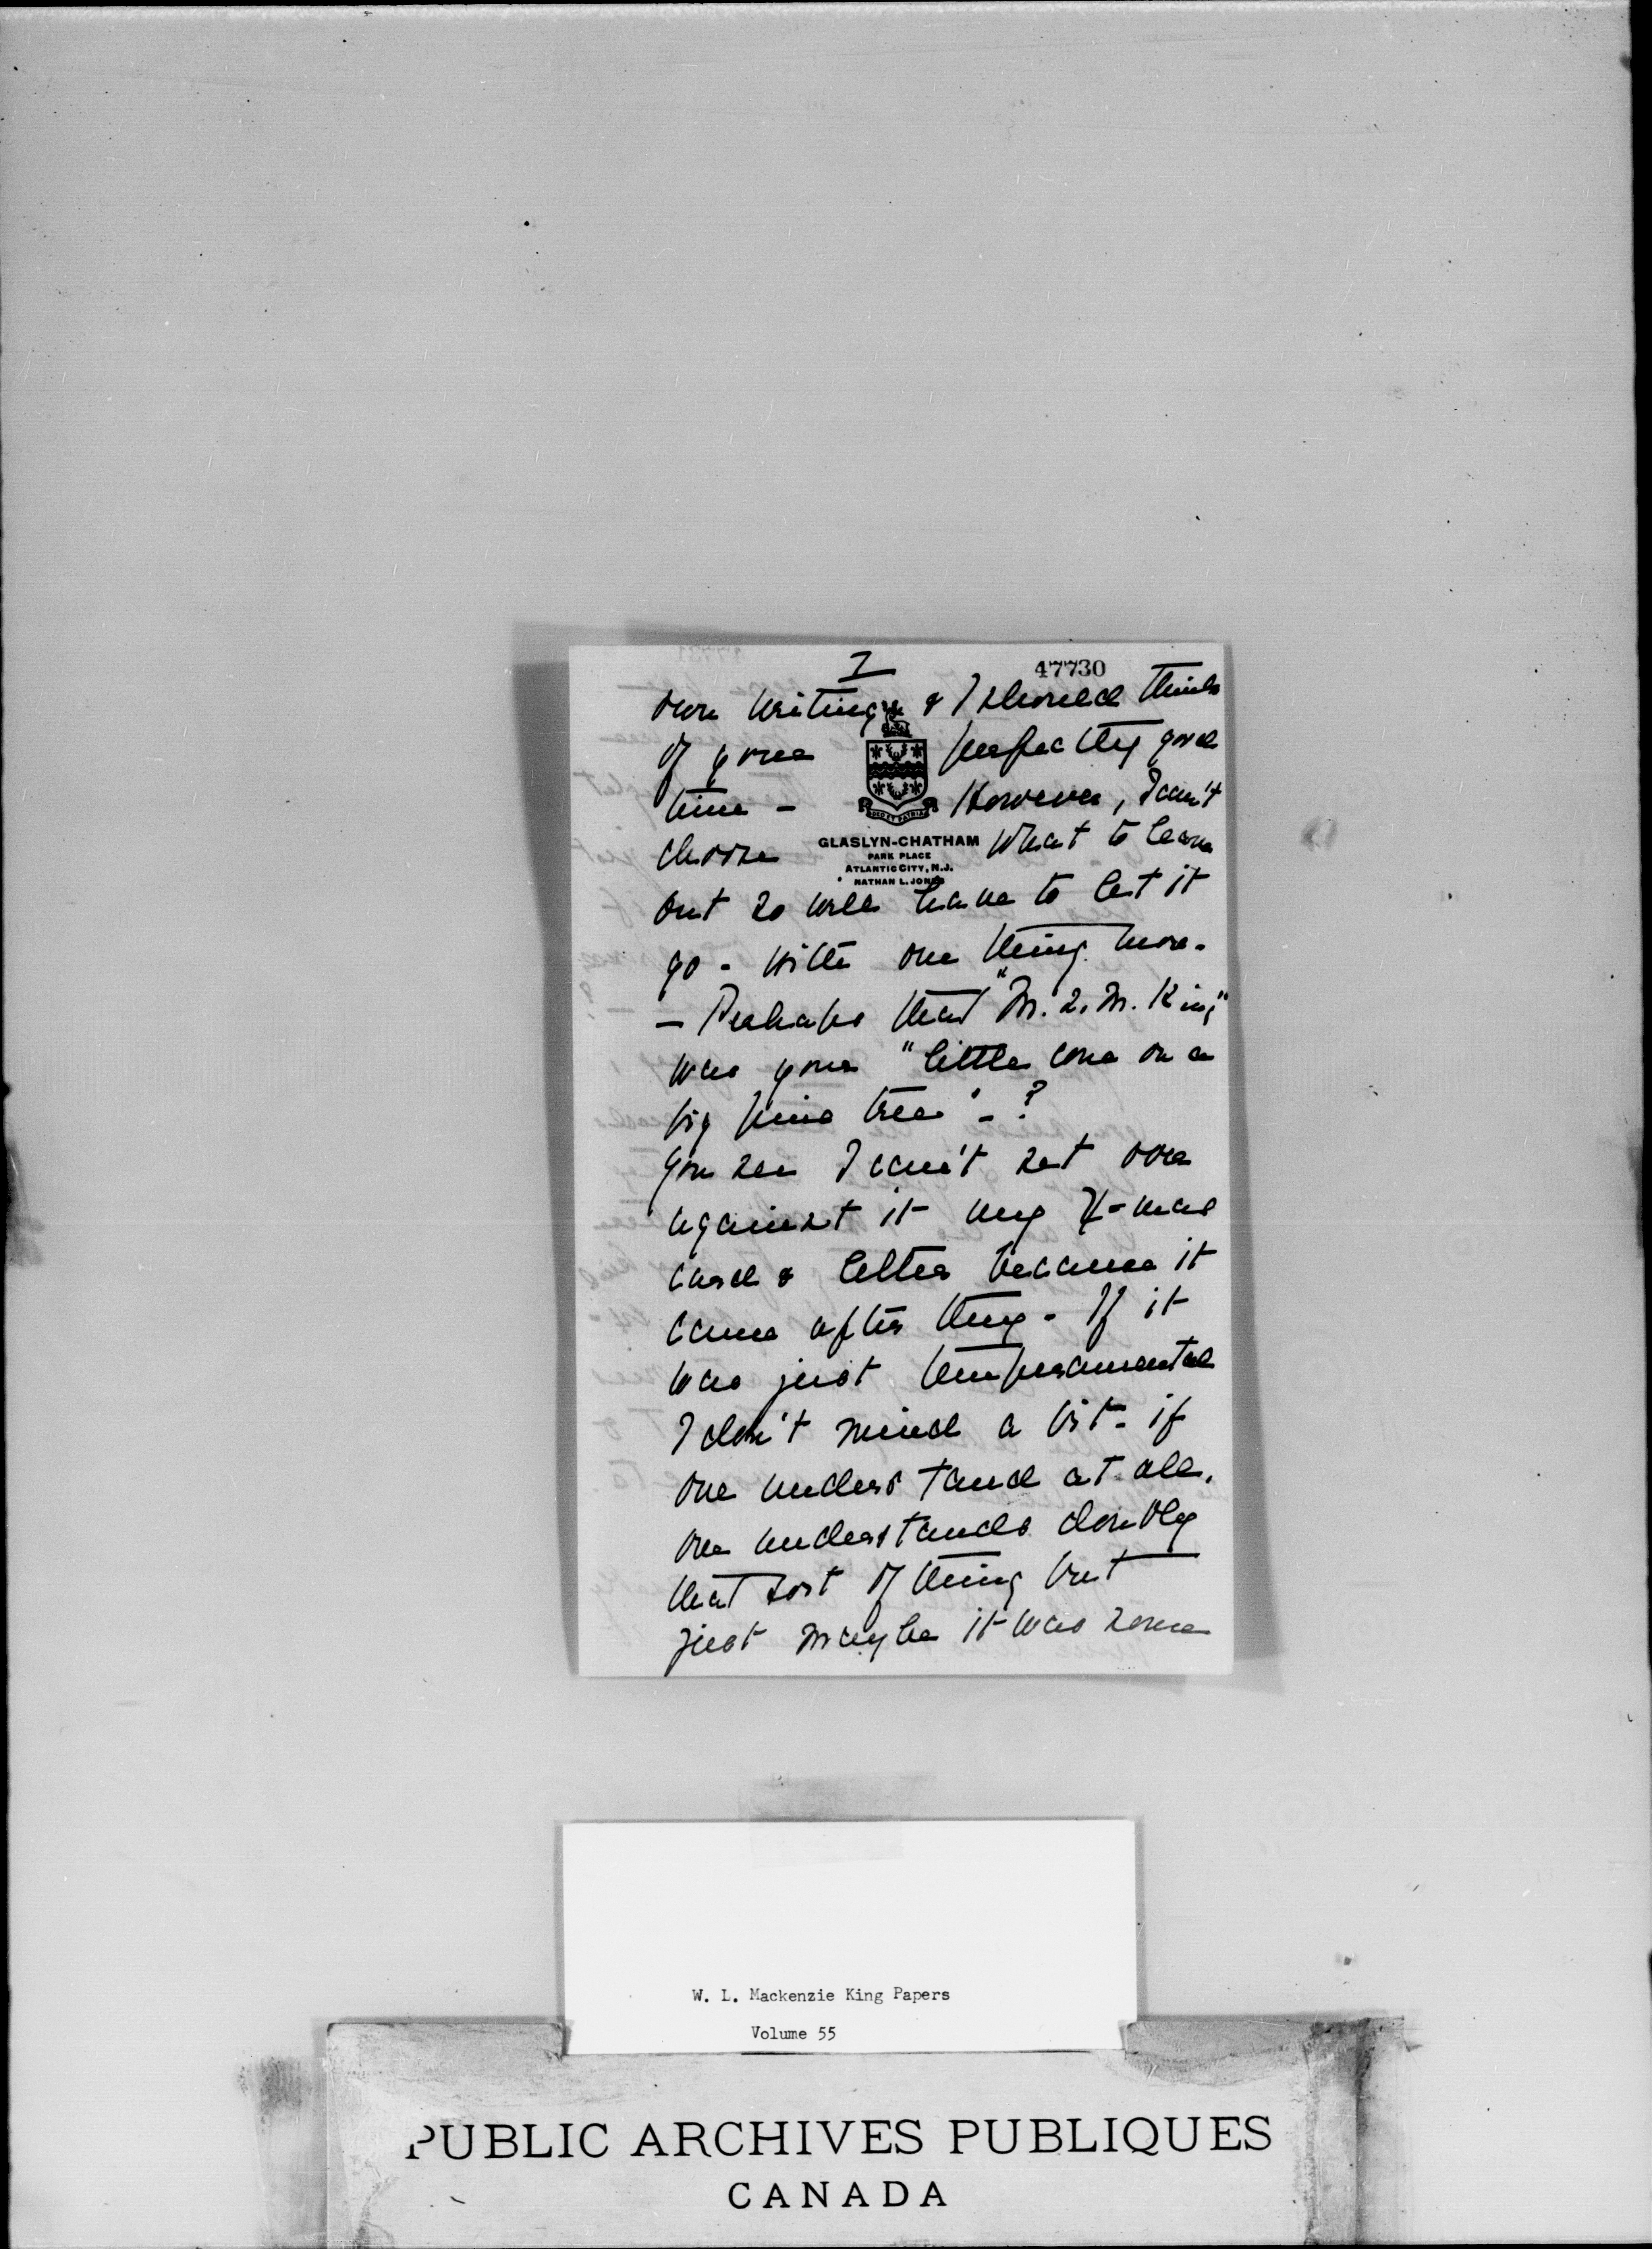 7
47730
own writing & I should think
of your perfectly good
time - However, I can't
choose what to leave
GLASLYN-CHATHAM
PARK PLACE
ATLANTIC CITY, N.J.
NATHAN L. JONES
out so will have to let it
go - with one thing more -
- Perhaps that "M. L. M. King"
was your "little cone on a
big pine tree" - ?
you see I can't set over
against it my X-mas
card & letter because it
came after they - If it
was just temperamental
I don't mind a bit - if
one understand at all,
one understands doubly
that sort of thing but
just maybe it was some
W. L. Mackenzie King Papers
Volume 55
PUBLIC ARCHIVES PUBLIQUES
CANADA